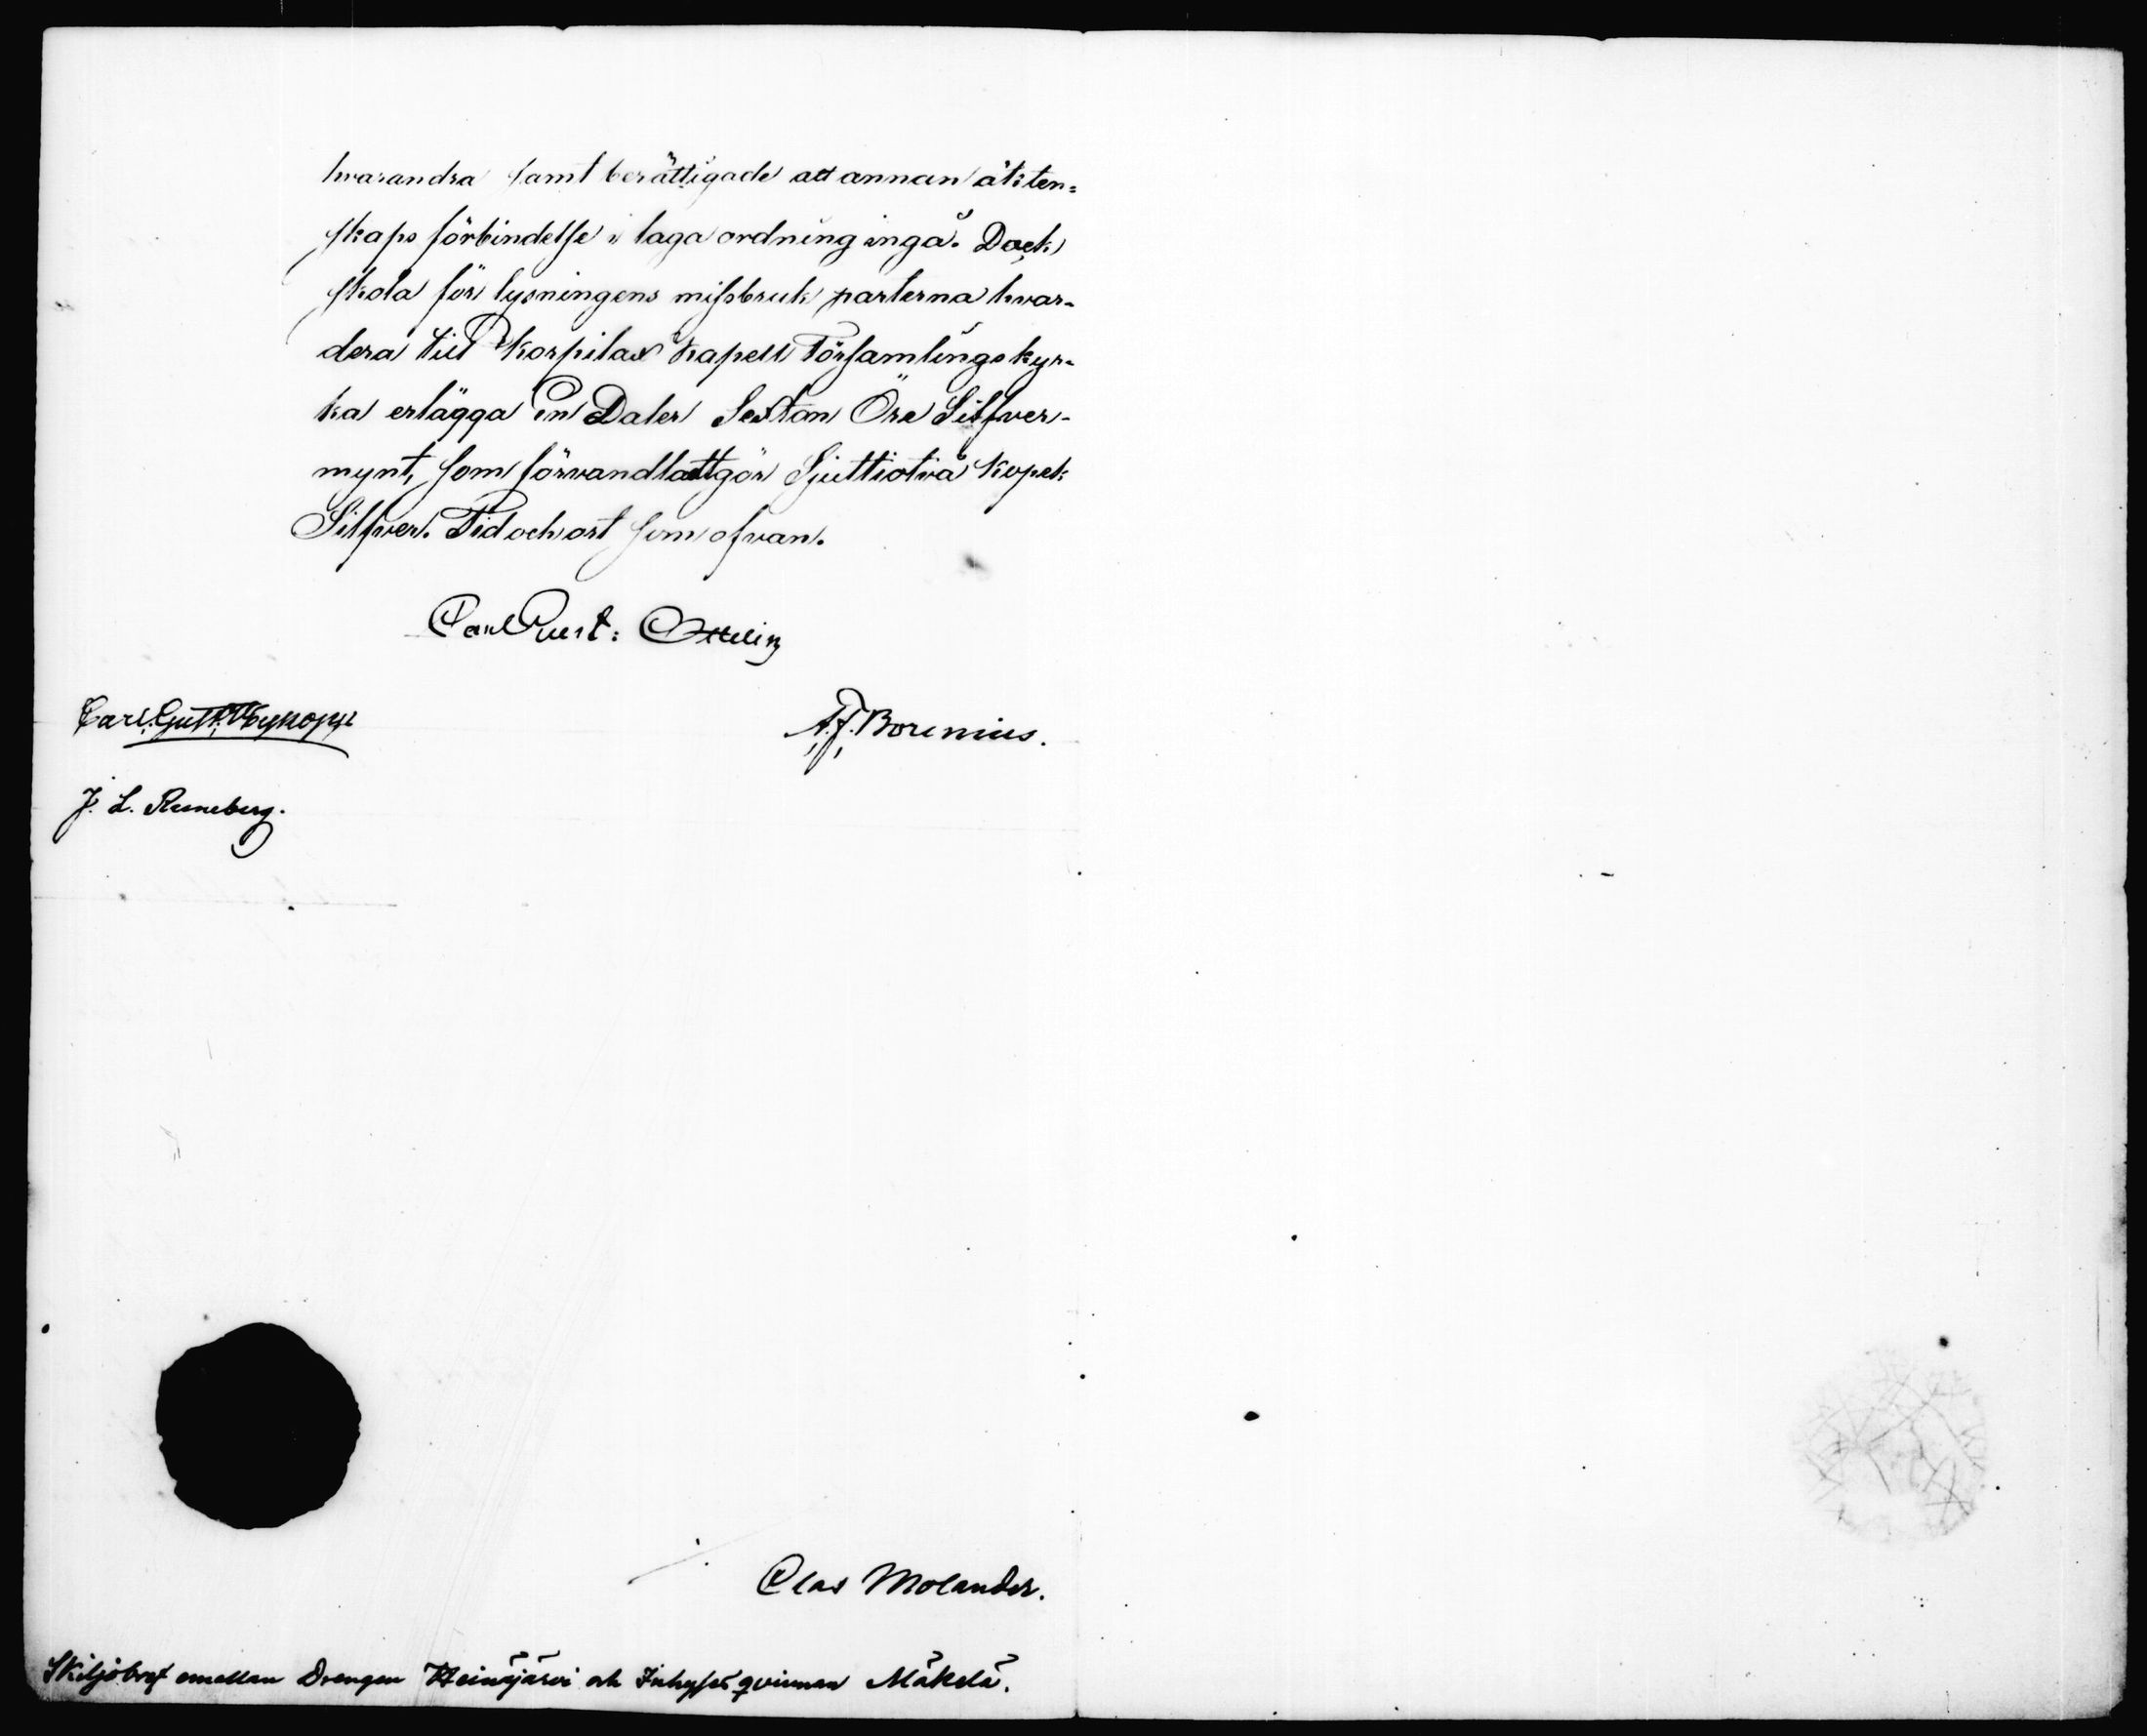 hvarandra samt berättigade att annan äkten=
skaps förbindelse i laga ordning ingå. Dock
skola för lysningens missbruk parterna hvar-
dera till Korpilax Kapell Församlings kyr-
ka erlägga en Daler Sexton Öre Silfver-
mynt, som förvandladt gör Sjuttiotvå Kopek
Silfver. Tid och ort som ofvan.
Carl Gust: Ottelin
Carl Gust. Weykopp
A. F. Borenius.
J. L. Runeberg.
Clas Molander.
Skiljobref emellan Drengen Heinäjärvi och Inhyses qvinnan Mäkelä.